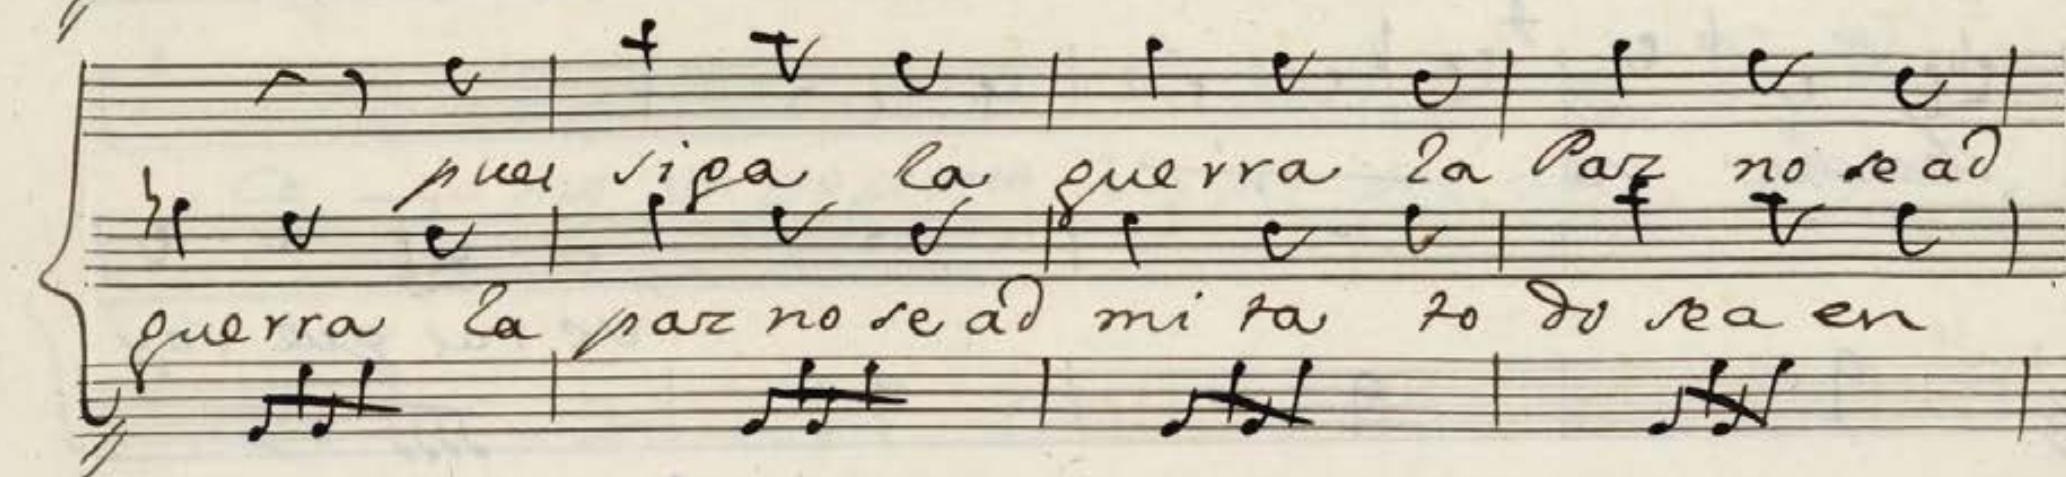 pues siga la guerra la Paz no se ad
guerra la paz no se ad mi ta to do sea en